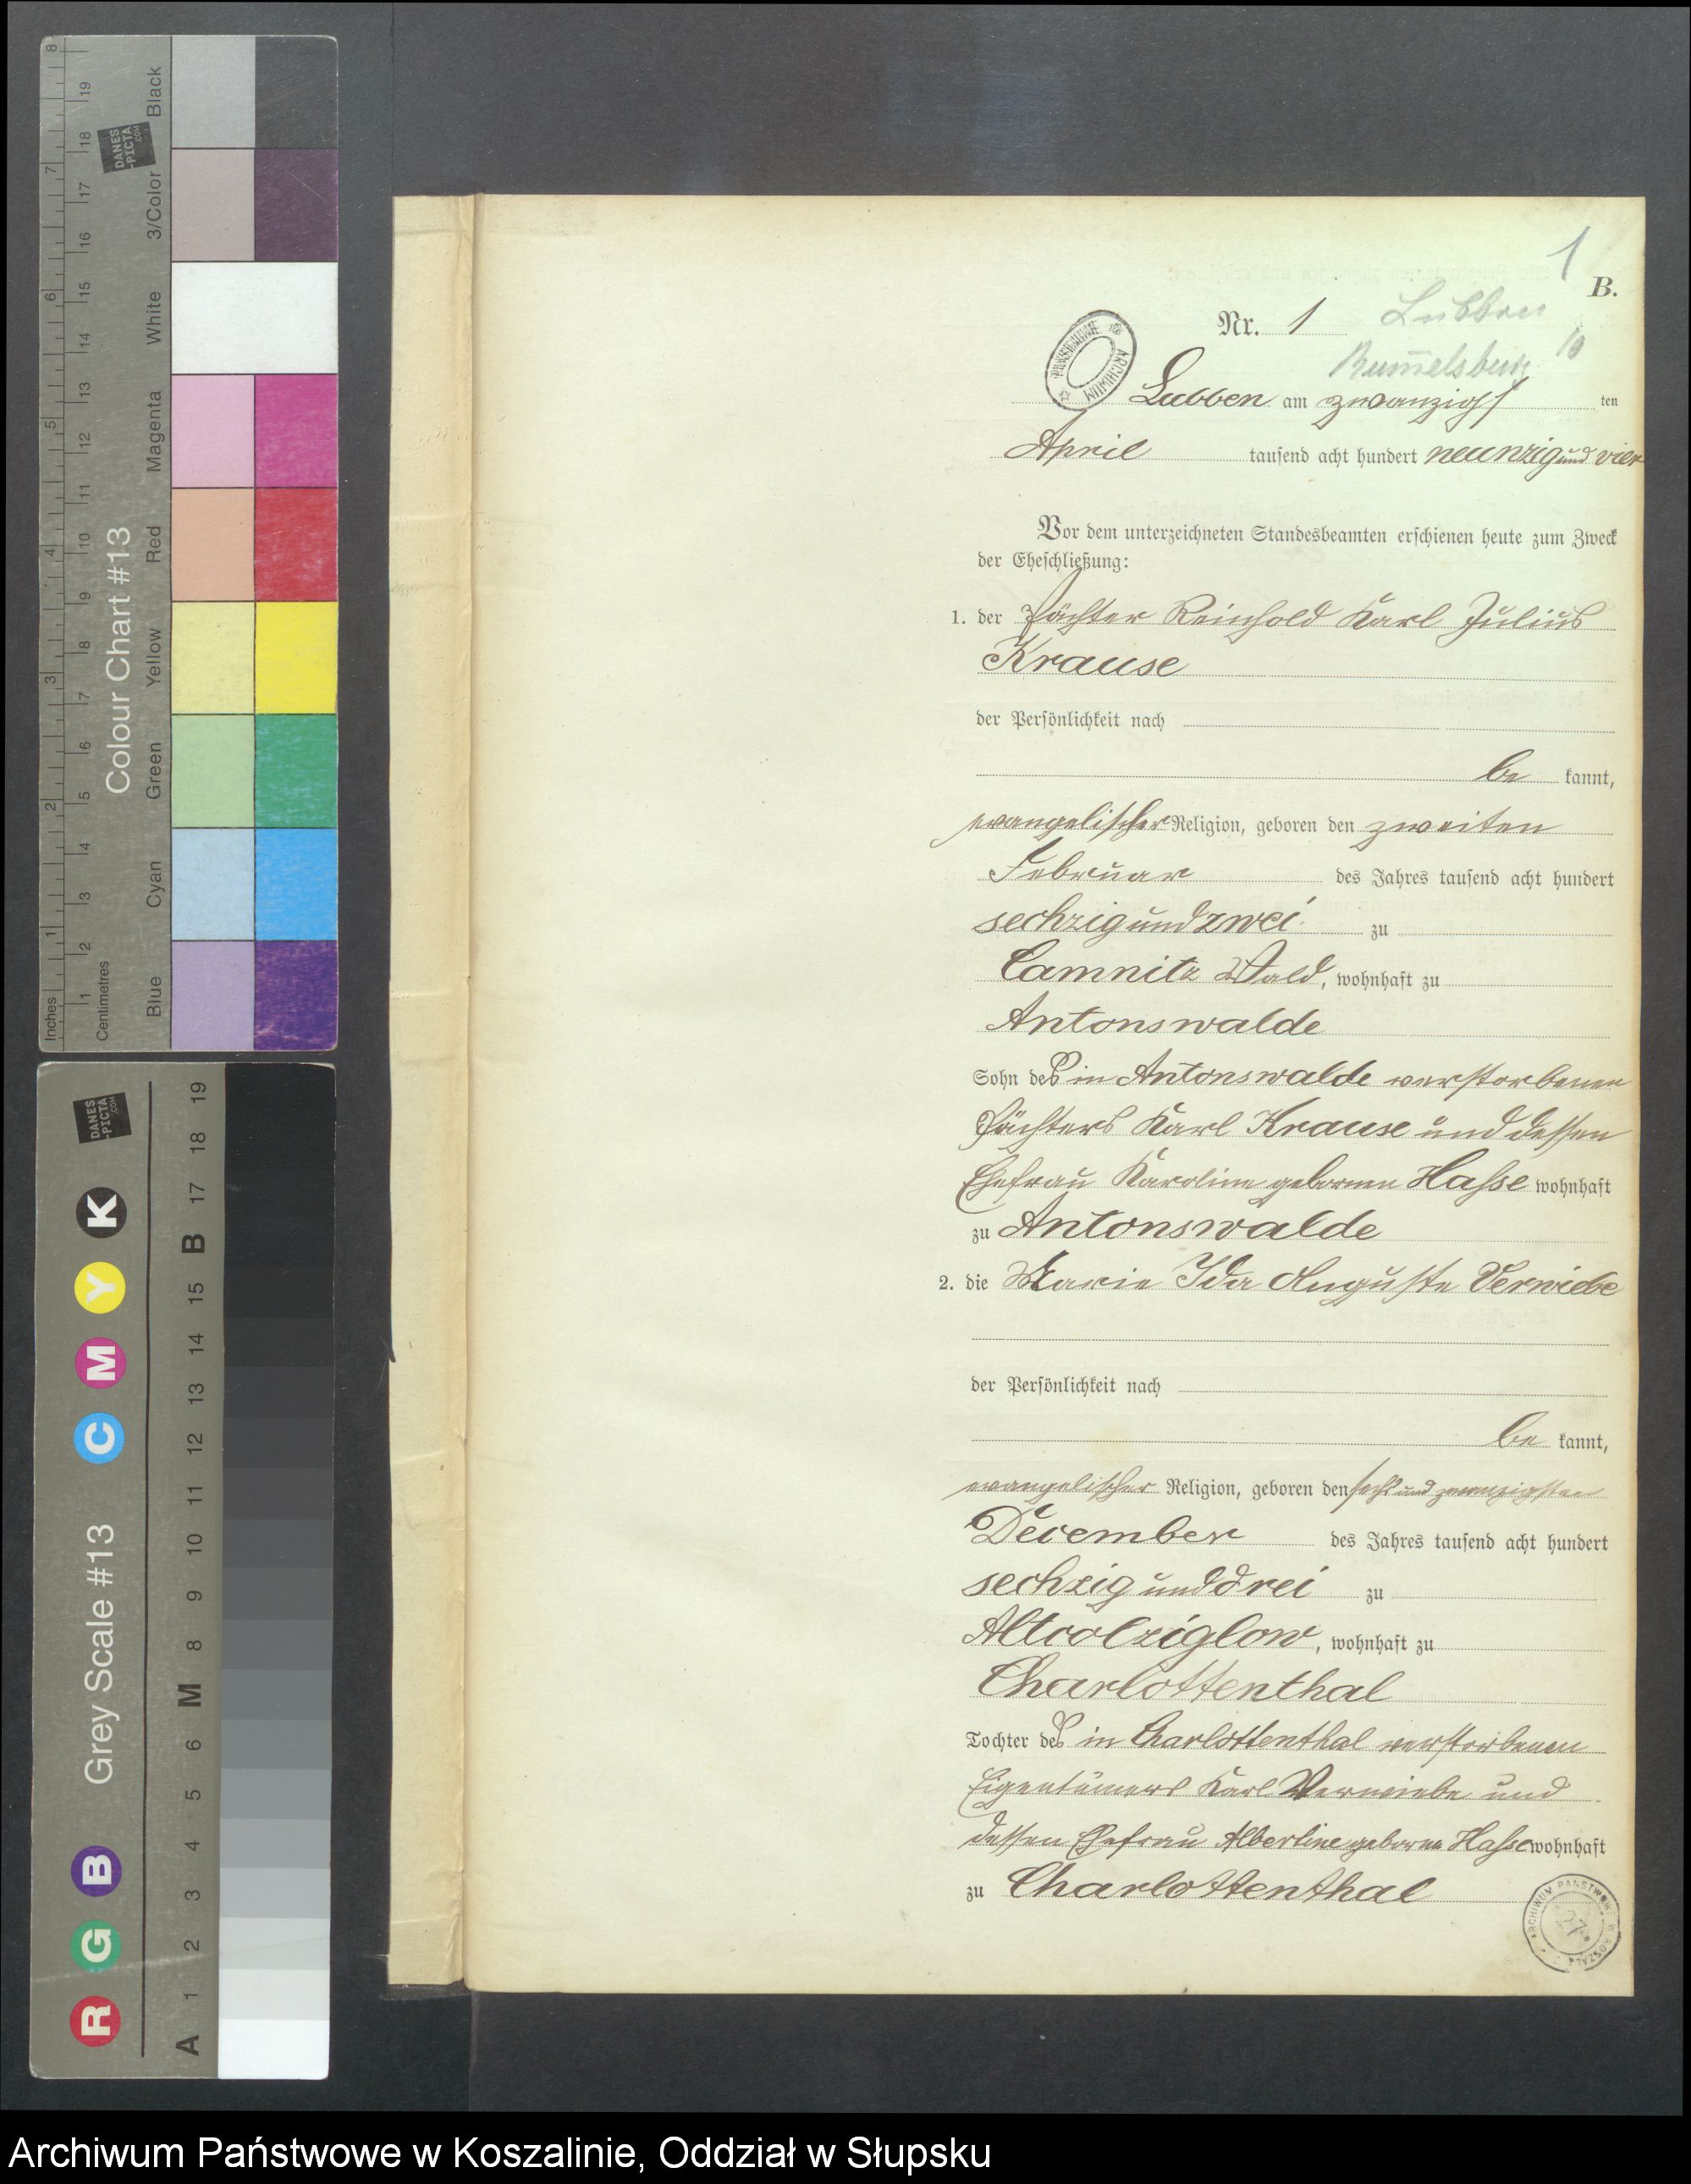 1
B.
Nr. 1 Lubben
Rummelsburg 10
Lubben am zwanzigs ten
April tausend acht hundert neunzig und vier
Vor dem unterzeichneten Standesbeamten erschienen heute zum Zweck
der Eheschließung:
1. der Pächter Reinhold Karl Julius
Krause
der Persönlichkeit nach
be kannt,
evangelischer Religion, geboren den zweiten
Februar des Jahres tausend acht hundert
sechzig und zwei zu
Camnitz Wald, wohnhaft zu
Antonswalde
Sohn des in Antonswalde verstorbenen
Pächters Karl Krause und dessen
Ehefrau Karoline geborenen Hasse wohnhaft
zu Antonswalde
2. die Marie Ida Auguste Verwiebe
der Persönlichkeit nach
be kannt,
evangelischer Religion, geboren den sechs und zwanzigsten
December des Jahres tausend acht hundert
sechzig und drei zu
wohnhaft zu
Charlottenthal
Tochter des in Charlottenthal verstorbenen
Eigentümers Karl Verwiebe und
dessen Ehefrau Albertine geborne Hasse wohnhaft
zu Charlottenthal
ARCHIWUM PAŃSTWOWE
27
Inches 1 2 3 4 5 6 7 8
Centimetres 1 2 3 4 5 6 7 8 9 10 11 12 13 14 15 16 17 18 19
Colour Chart #13
Blue Cyan Green Yellow Red Magenta White 3/Color Black
DANES
-PICTA
.COM
Grey Scale #13
R G B C M Y K
A 1 2 3 4 5 6 M 8 9 10 11 12 13 14 15 B 17 18 19
DANES
-PICTA
.COM
Archiwum Państwowe w Koszalinie, Oddział w Słupsku